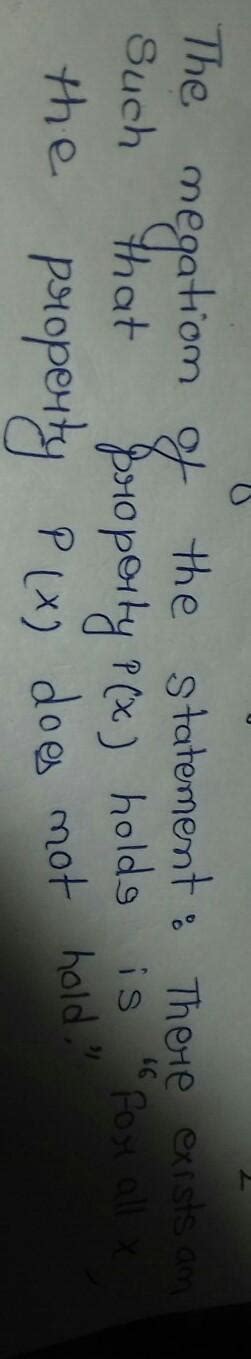 The negation of the statement: There exists an
such that property P(x) holds is "For all x,
the property P(x) does not hold."